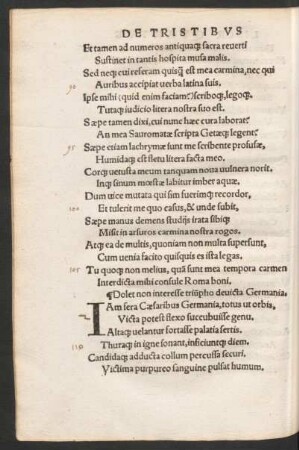 DE TRISTIBVS
Et tamen ad numeros antiquaq; sacra reuerti
Sustinet in tantis hospita musa malis.
Sed neq; cui referam quisq̃ est mea carmina, nec qui
90 Auribus accipiat verba latina suis.
Ipse mihi (quid enim faciam?) scriboq;, legoq;.
Tutaq; iudicio litera nostra suo est.
Sæpe tamen dixi, cui nunc hæc cura laborat?
An mea Sauromatæ scripta Getæq; legent?
95 Sæpe etiam lachrymæ sunt me scribente profusæ,
Humidaq; est fletu litera facta meo.
Corq; uetusta meum tanquam noua vulnera norit.
Inq; sinum mœstæ labitur imber aquæ.
Dum uice mutata qui sim fuerimq; recordor,
100 Et tulerit me quo casus, & unde subit,
Sæpe manus demens studijs irata sibiq;
Misit in arsuros carmina nostra rogos.
Atq; ea de multis, quoniam non multa supersunt,
Cum uenia facito quisquis es ista legas.
105 Tu quoq; non melius, quã sunt mea tempora carmen
Interdicta mihi consule Roma boni.
¶Dolet non interesse triũpho deuicta Germania.
IAm fera Cæsaribus Germania, totus ut orbis,
Victa potest flexo succubuisse genu.
Altaq; uelantur fortasse palatia sertis.
110 Thuraq; in igne sonant, inficiuntq; diem.
Candidaq; adducta collum percussa securi.
Victima purpureo sanguine pulsat humum.